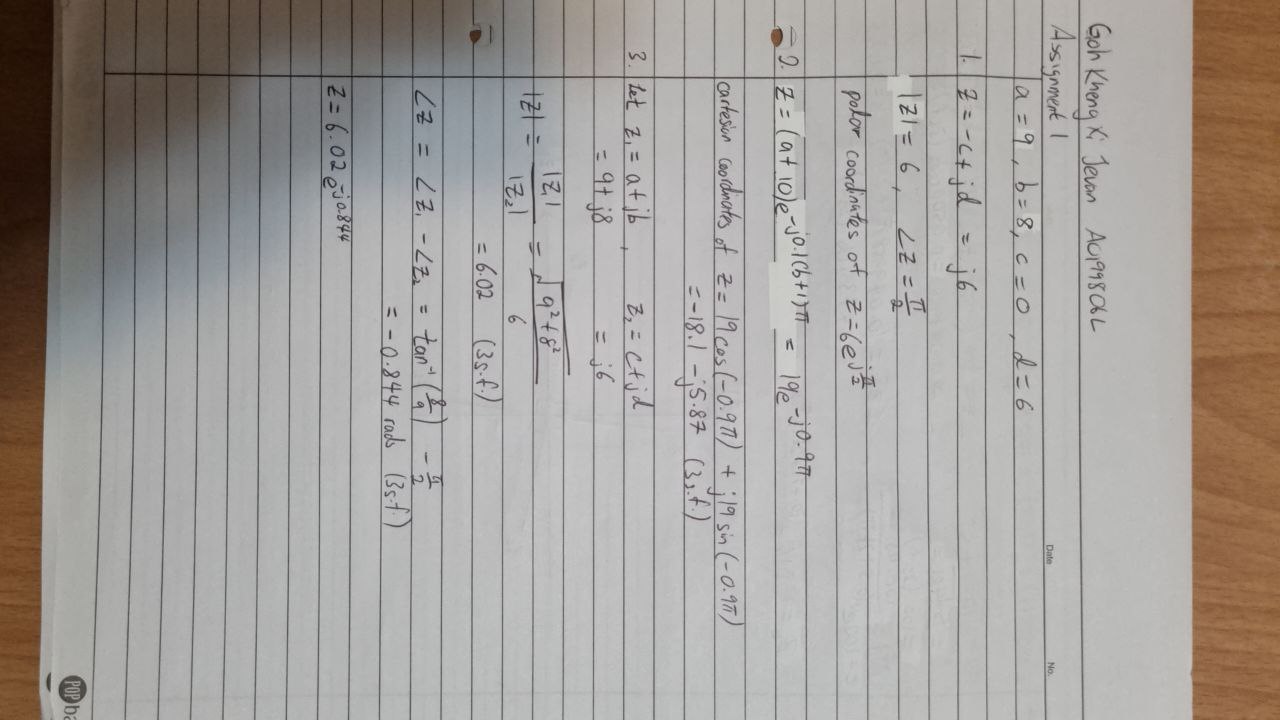 Goh Kheng Xi Jevan A0199806L
Assignment 1
Date No.
a = 9 , b = 8, c = 0 , d = 6
1. z = -c + jd = j6
|z| = 6, ∠z = π/2
polar coordinates of z = 6e^(jπ/2)
2. z = (a + 10)e^(-j0.1(b+1)π) = 19e^(-j0.9π)
cartesian coordinates of z = 19 cos(-0.9π) + j19 sin(-0.9π)
= -18.1 - j5.87 (3s.f.)
3. Let z₁ = a + jb , z₂ = c + jd
= 9 + j8 = j6
|z| = |z₁|/|z₂| = √(9² + 8²)/6
= 6.02 (3s.f.)
∠z = ∠z₁ - ∠z₂ = tan⁻¹(8/9) - π/2
= -0.844 rads (3s.f.)
z = 6.02 e^(-j0.844)
POP ba